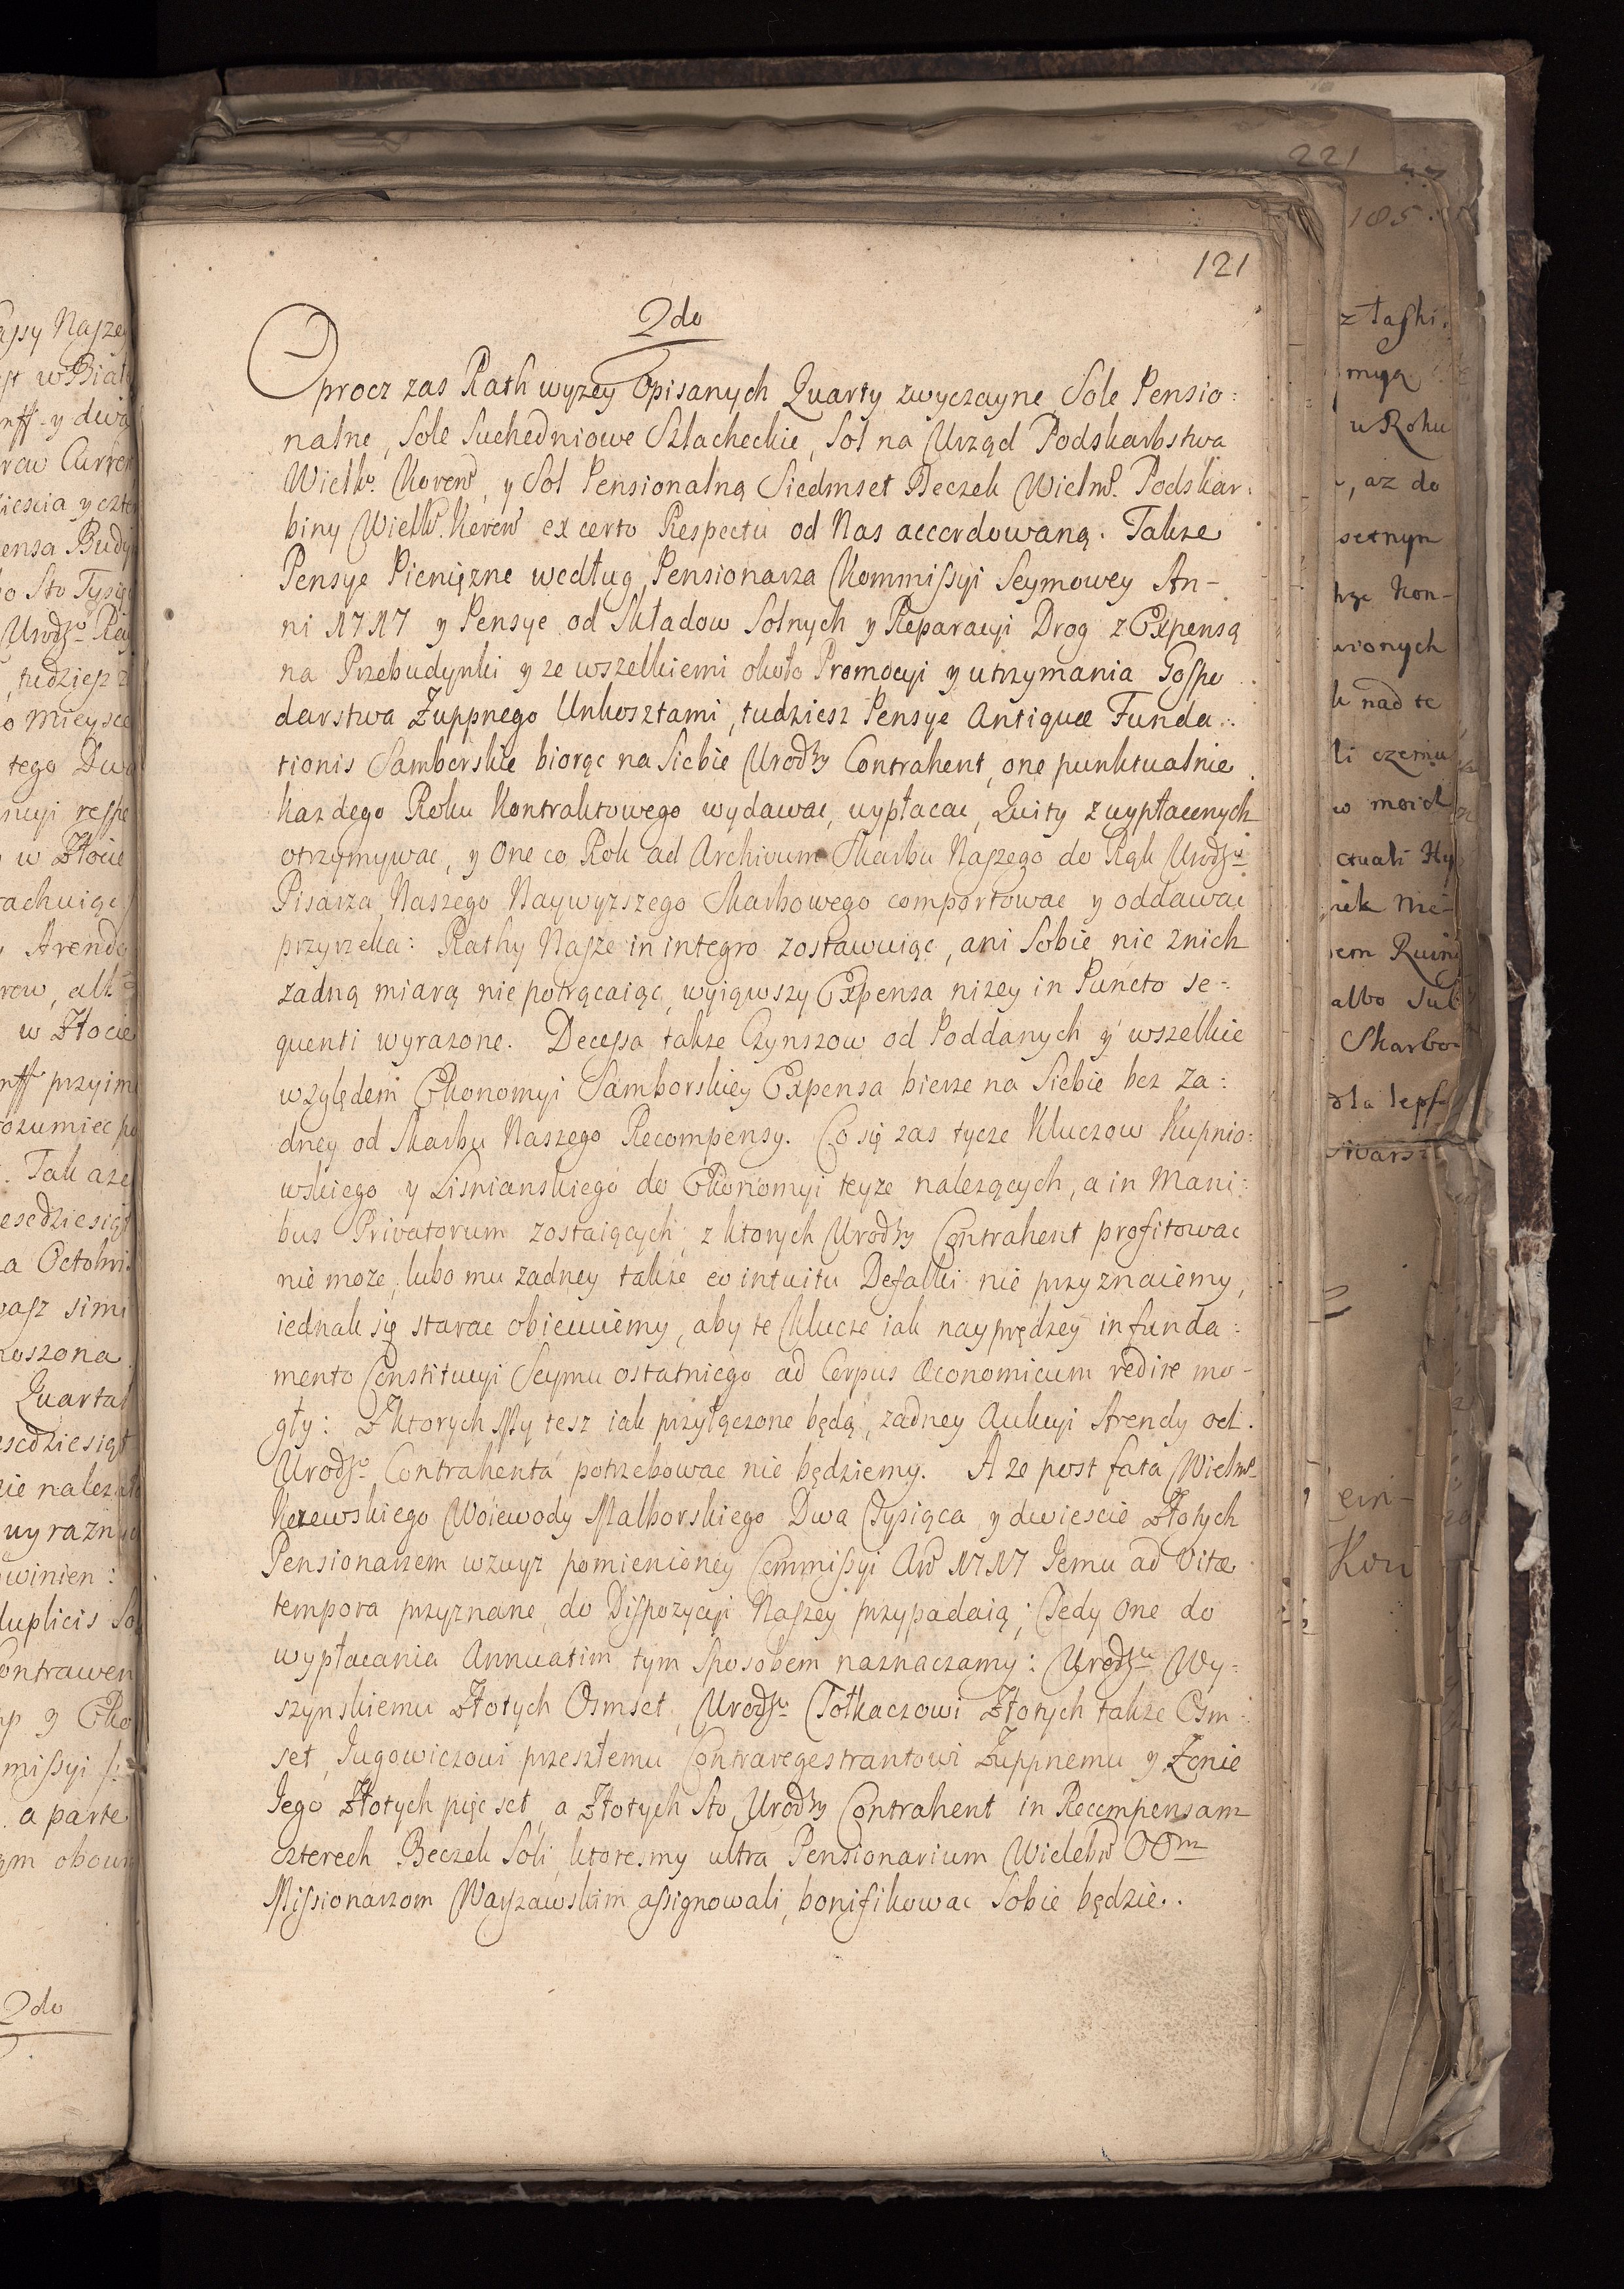 121
2do
Oprocz zas Rath wyzey Opisanych Quarty zwyczayne Sole Pensio:
nalne, Sole Suchedniowe Szlacheckie, Sol na Urząd Podskarbstwa
Wielk. Koron, y Sol Pensionalną Siedmset Beczek Wielm. Podskar:
biny Wielk. Koron ex certo Respectu od Nas accordowaną. Takze
Pensye Pienięzne według Pensionarza Kommissyi Seymowey An-
ni 1717 y Pensye od Składow Solnych y Reparacyi Drog z Expensą
na Przebudynki y ze wszelkiemi około Promocyi y utrzymania Gospo
darstwa Zuppnego Unkosztami, tudziesz Pensye Antiquæ Funda:
tionis Samborskie biorąc na Siebie Urodzy Contrahent, one punktualnie
kazdego Roku Kontraktowego wydawac, wypłacac, Quity z wypłaconych
otrzymywac, y One co Rok ad Archivum Skarbu Naszego do Rąk Urodzo
Pisarza Naszego Naywyzszego Skarbowego comportowac y oddawac
przyrzeka: Rathy Nasze in integro zostawuiąc, ani Sobie nic z nich
zadną miarą nie potrącaiąc, wyiąwszy Expensa nizey in Puncto se-
quenti wyrazone. Decessa takze Czynszow od Poddanych y wszelkie
względem Ekonomyi Samborskiey Expensa bierze na Siebie bez Za:
dney od Skarbu Naszego Recompensy. Co się zas tycze Kluczow Kupnio:
wskiego y Lisnianskiego do Ekonomyi teyze nalezących, a in Mani:
bus Privatorum zostaiących, z ktorych Urodzy Contrahent profitowac
nie moze, lubo mu zadney takze eo intuitu Defalki nie przyznaiemy,
iednak się starac obiecuiemy, aby te Klucze iak nayprędzey in funda:
mento Constitucyi Seymu ostatniego ad Corpus Œconomicum redire mo-
gły: Z ktorych My tesz iak przyłączone będą, zadney Aukcyi Arendy od
Urodzo Contrahenta potrzebowac nie będziemy. A ze post fata Wielm
Kczewskiego Woiewody Malborskiego Dwa Tysiąca y dwiescie Złotych
Pensionarzem wzwyz pomienioney Commissyi Ao 1717 Iemu ad Vitæ
tempora przyznane, do Dispozycyi Naszey przypadaią; Tedy One do
wypłacania Annuatim tym Sposobem naznaczamy: Urodzu Wy:
szynskiemu Złotych Osmset, Urodzu Tołkaczowi Złotych takze Osm:
set, Iugowiczowi przeszłemu Contraregestrantowi Zuppnemu y Zonie
Iego Złotych pięc set, a Złotych Sto Urodzy Contrahent in Recompensam
czterech Beczek Soli, ktoresmy ultra Pensionarium Wieleb OOm
Missionarzom Warszawskim assignowali, bonifikowac Sobie będzie.